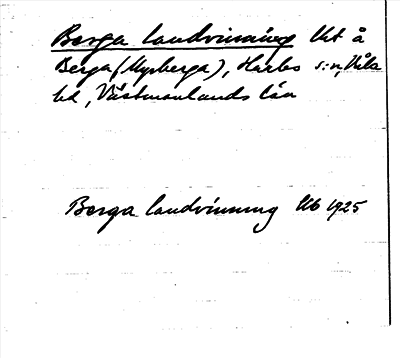 Berga landvinning Ut å
Berga (Myrberga), Harbo s:n, Våla
hd, Västmanlands län
Berga landvinning Ub 1925